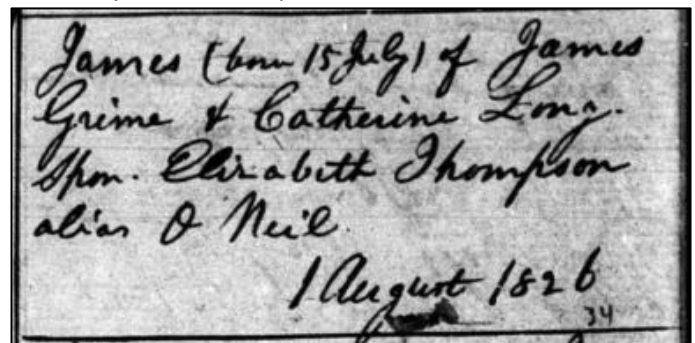 James (born 15 July) of James
Grime & Catherine Long.
Spon. Elizabeth Thompson
alias O Neil
1 August 1826
34